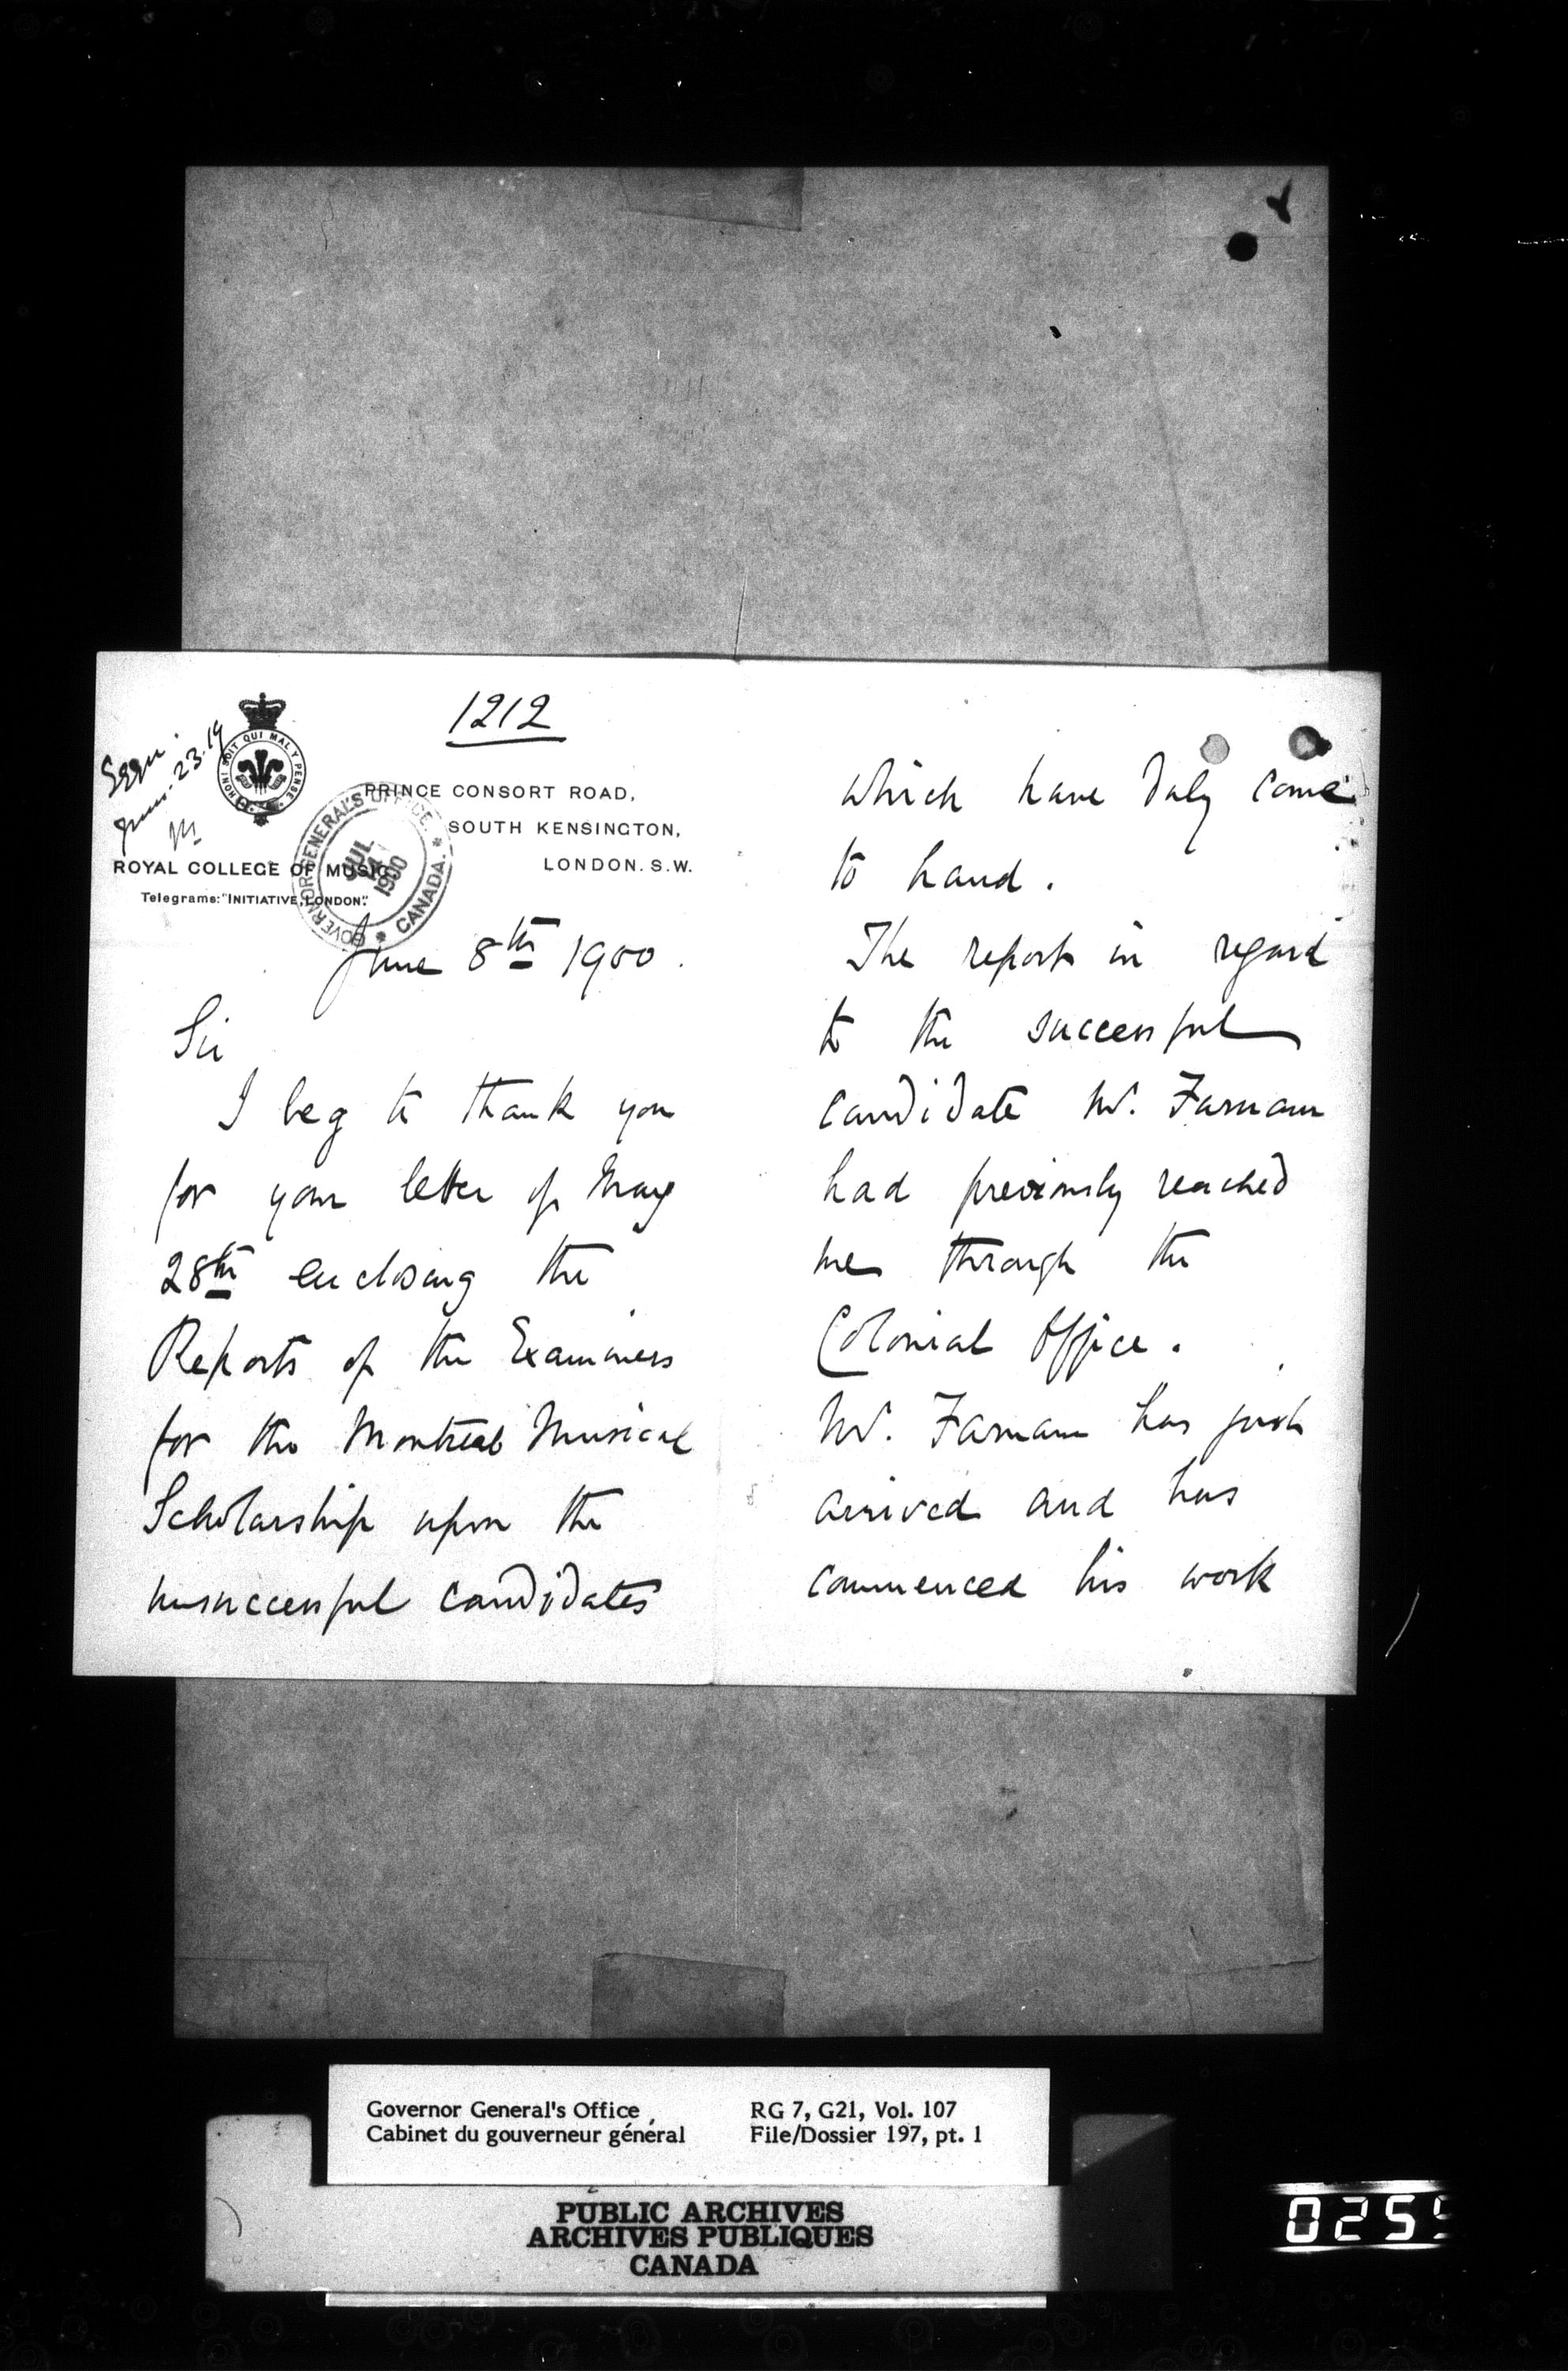 1212
HONI SOIT QUI MAL Y PENSE
PRINCE CONSORT ROAD,
SOUTH KENSINGTON,
LONDON. S.W.
ROYAL COLLEGE OF MUSIC,
Telegrams: "INITIATIVE, LONDON."
GOVERNOR GENERAL'S OFFICE. * CANADA. *
JUL
1900
June 8th 1900.
Sir
I beg to thank you
for your letter of May
28th enclosing the
Reports of the Examiners
for the Montreal Musical
Scholarship upon the
unsuccessful candidates
which have duly come
to hand.
The report in regard
to the successful
candidate W. Farnam
had previously reached
me through the
Colonial Office.
W. Farnam has just
arrived and has
commenced his work
Governor General's Office
Cabinet du gouverneur général
RG 7, G21, Vol. 107
File/Dossier 197, pt. 1
PUBLIC ARCHIVES
ARCHIVES PUBLIQUES
CANADA